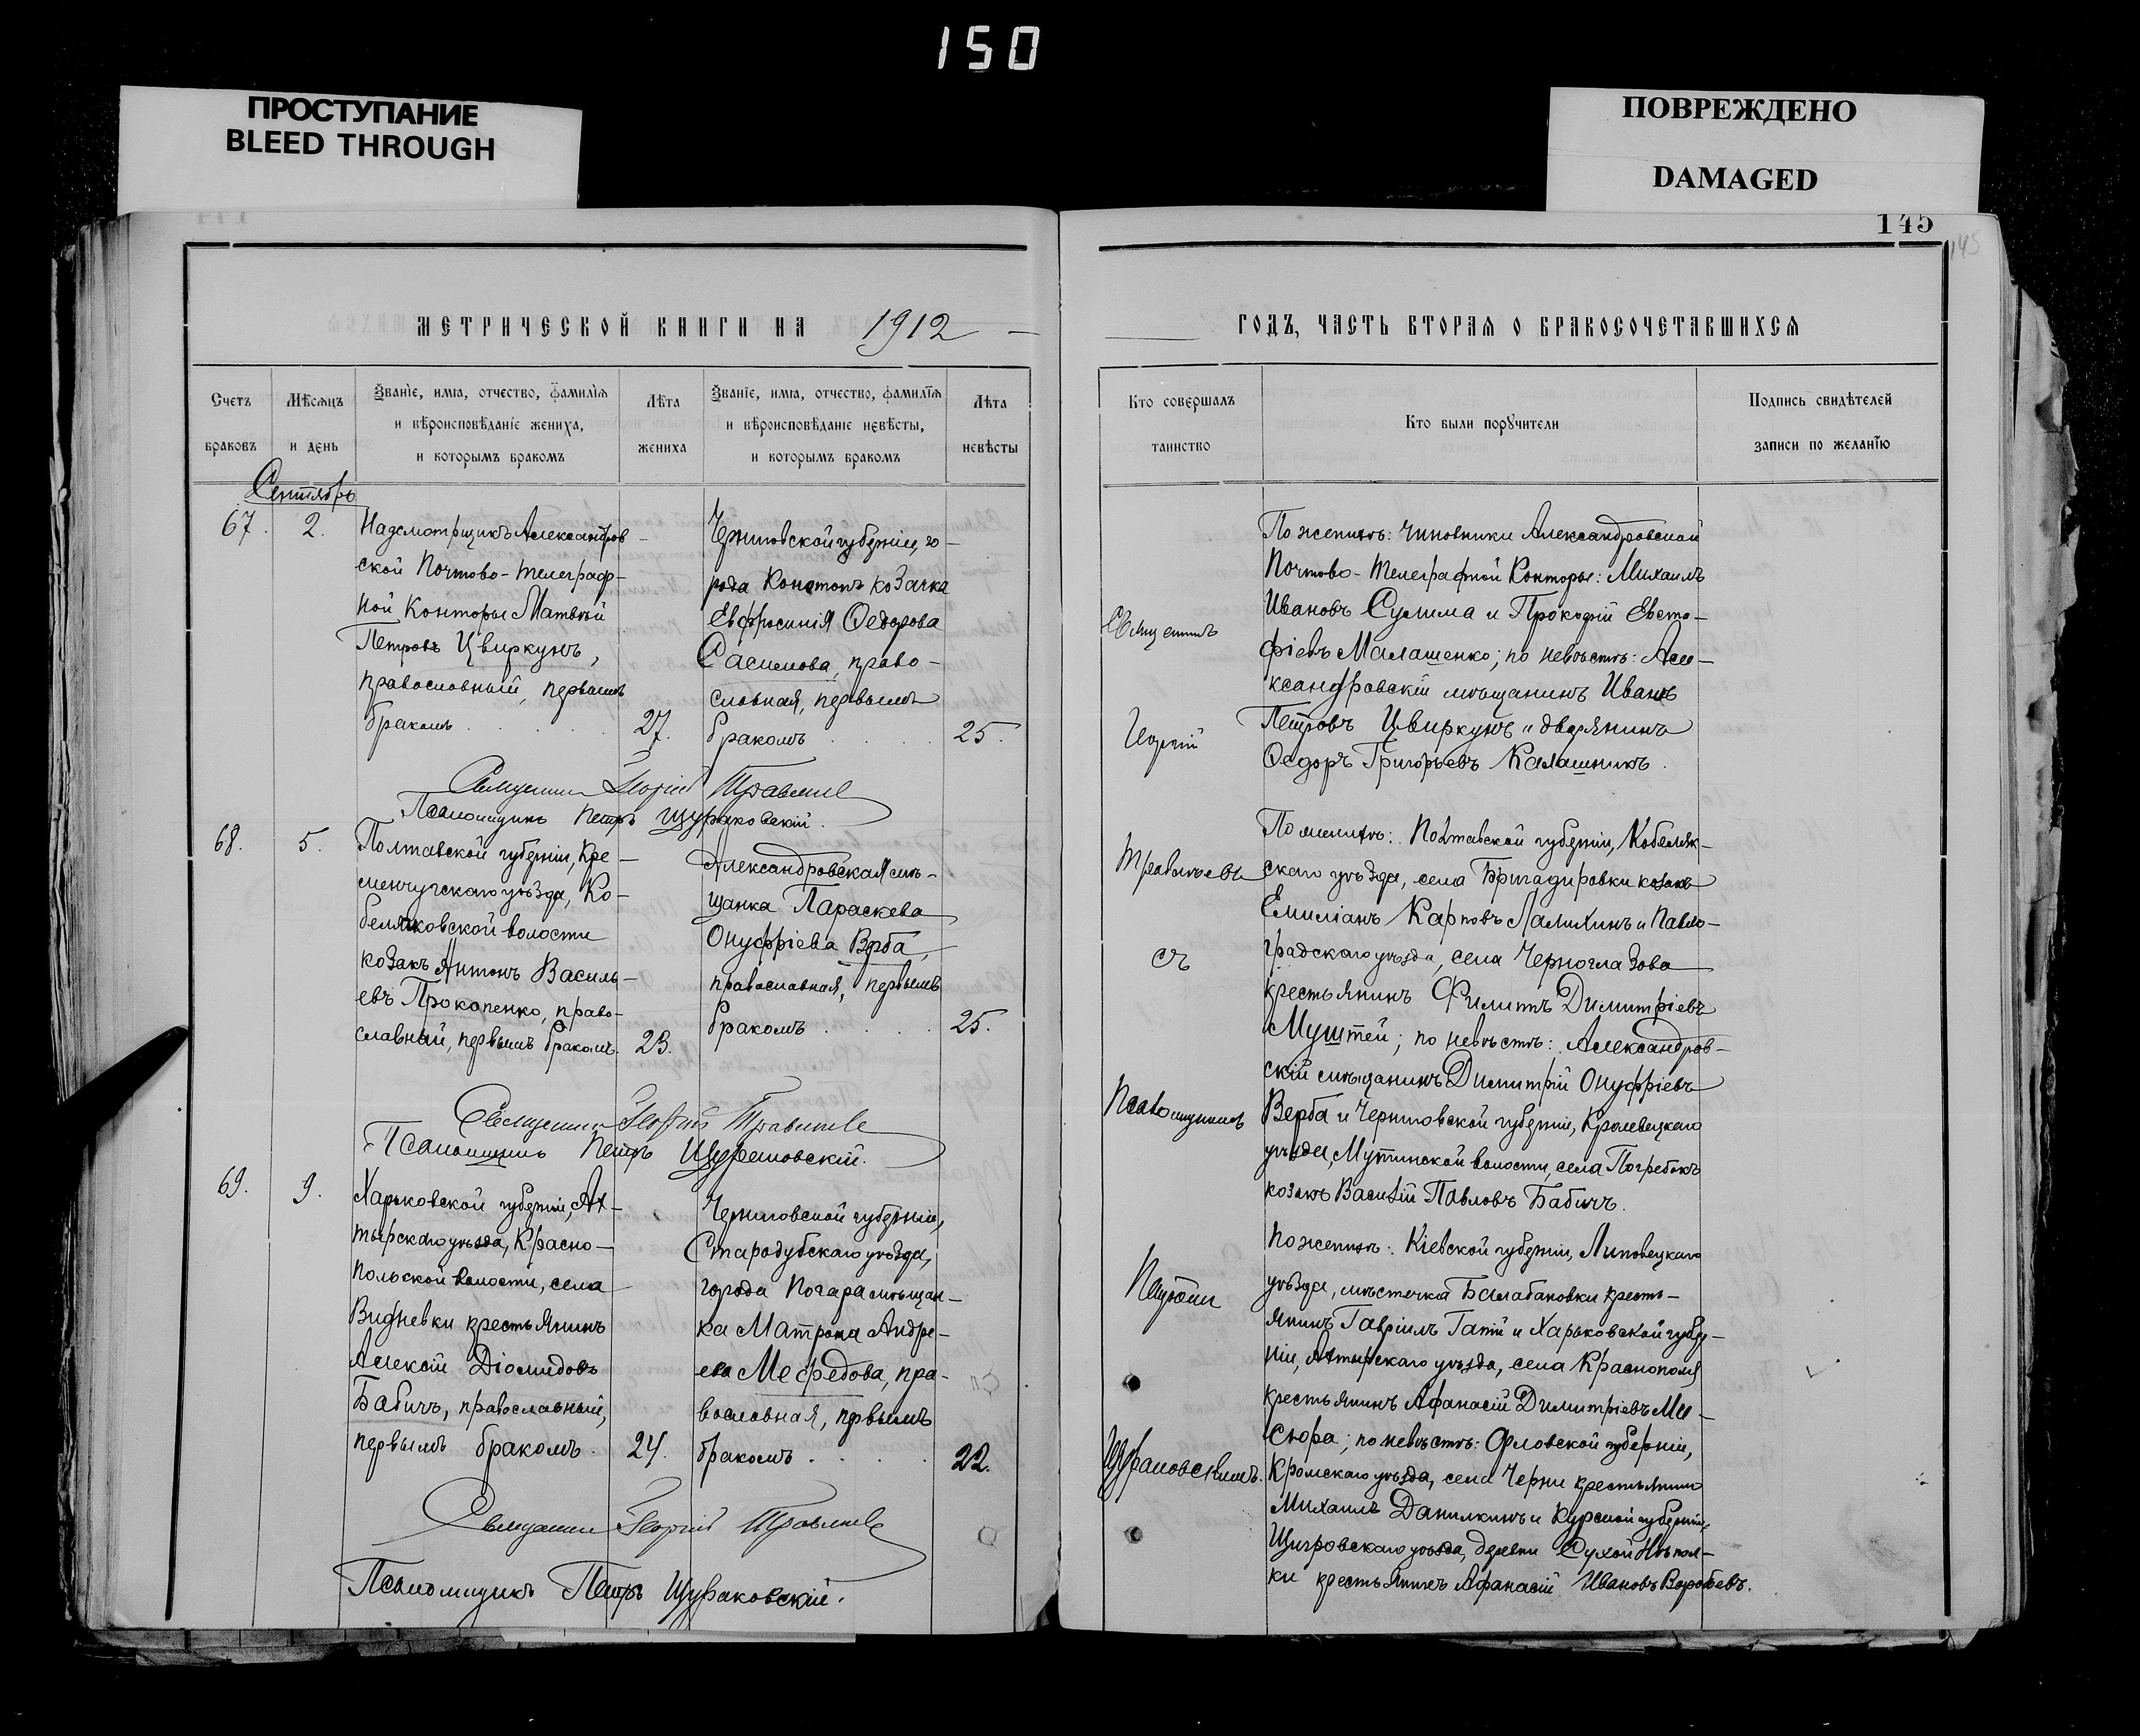 150
ПРОСТУПАНИЕ
BLEED THROUGH
ПОВРЕЖДЕНО
DAMAGED
145
145
МЕТРИЧЕСКОЙ КНИГИ НА 1912
Счетъ браковъ
Мѣсяцъ и день
Званіе, имя, отчество, фамилія
и вѣроисповѣданіе жениха,
и которымъ бракомъ
Лѣта жениха
Званіе, имя, отчество, фамилія
и вѣроисповѣданіе невѣсты,
и которымъ бракомъ
Лѣта невѣсты
Сентябрь
67. 2.
Надсмотрщикъ Александров-
ской Почтово-телеграф-
ной Конторы Матвѣй
Петровъ Цвиркунъ,
православный, первымъ
бракомъ
27.
Черниговской губерніи, го-
рода Конотопъ козачка
Евфросинія Ѳедорова
православная, первымъ
бракомъ
25.
Священникъ Георгій
Псаломщикъ Петръ Щураковскій.
68. 5.
Полтавской губерніи, Кре-
менчугскаго уѣзда, Ко-
беляковской волости
козакъ Антонъ Василь-
евъ Прокопенко, право-
славный, первымъ бракомъ.
23.
Александровская мѣ-
щанка Параскева
Онуфріева Верба,
православная, первымъ
бракомъ
25.
Священникъ Георгій
Псаломщикъ Петръ Щураковскій.
69. 9.
Харьковской губерніи, Ах-
тырскаго уѣзда, Красно-
польской волости, села
Видневки крестьянинъ
Алексій Діомидовъ
Бабичъ, православный,
первымъ бракомъ.
24.
Черниговской губерніи,
Стародубскаго уѣзда,
города Погара мѣщан-
ка Матрона Андре-
ева Мефедова, пра-
вославная, первымъ
бракомъ
22.
Священникъ Георгій
Псаломщикъ Петръ Щураковскій.
ГОДЪ, ЧАСТЬ ВТОРАЯ О БРАКОСОЧЕТАВШИХСЯ
Кто совершалъ
таинство
Кто были поручители
Подпись свидѣтелей
записи по желанію
Священникъ
Георгій
съ
Псаломщикомъ
Петромъ
Щураковскимъ.
По женихѣ: чиновники Александровской
Почтово-Телеграфной Конторы: Михаилъ
Ивановъ Сулима и Прокофій Евста-
фіевъ Малашенко; по невѣстѣ: Але-
ксандровскій мѣщанинъ Иванъ
Петровъ Цвиркунъ и дворянинъ
Ѳедоръ Григорьевъ Калашникъ.
По женихѣ: Полтавской губерніи, Кобеляк-
скаго уѣзда, села Бригадировки козакъ
Емиліанъ Карповъ и Павло-
градскаго уѣзда, села Черноглазова
крестьянинъ Филиппъ Димитріевъ
Муштей; по невѣстѣ: Александров-
скій мѣщанинъ Димитрій Онуфріевъ
Верба и Черниговской губерніи, Кролевецкаго
уѣзда, Мутинской волости, села Погребокъ
козакъ Василій Павловъ Бабичъ.
По женихѣ: Кіевской губерніи, Липовецкаго
уѣзда, мѣстечка Балабановки кресть-
янинъ Гавріилъ Гатій и Харьковской губер-
ніи, Ахтырскаго уѣзда, села Краснополя
крестьянинъ Афанасій Димитріевъ Ми-
сюра; по невѣстѣ: Орловской губерніи,
Кромскаго уѣзда, села Черни крестьянинъ
Михаилъ Данилкинъ и Курской губерніи,
Щигровскаго уѣзда, деревни Сухой
крестьянинъ Афанасій Ивановъ Воробьевъ.